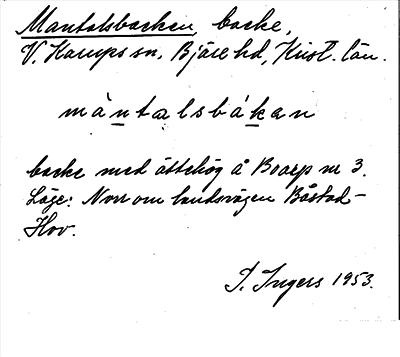 Mantalsbacken, backe,
V. Karups sn, Bjäre hd, Krist. län.
màntalsbákan
backe med ättehög å Boarp nr 3.
Läge: Norr om landsvägen Båstad-
Hov.
I. Ingers 1953.